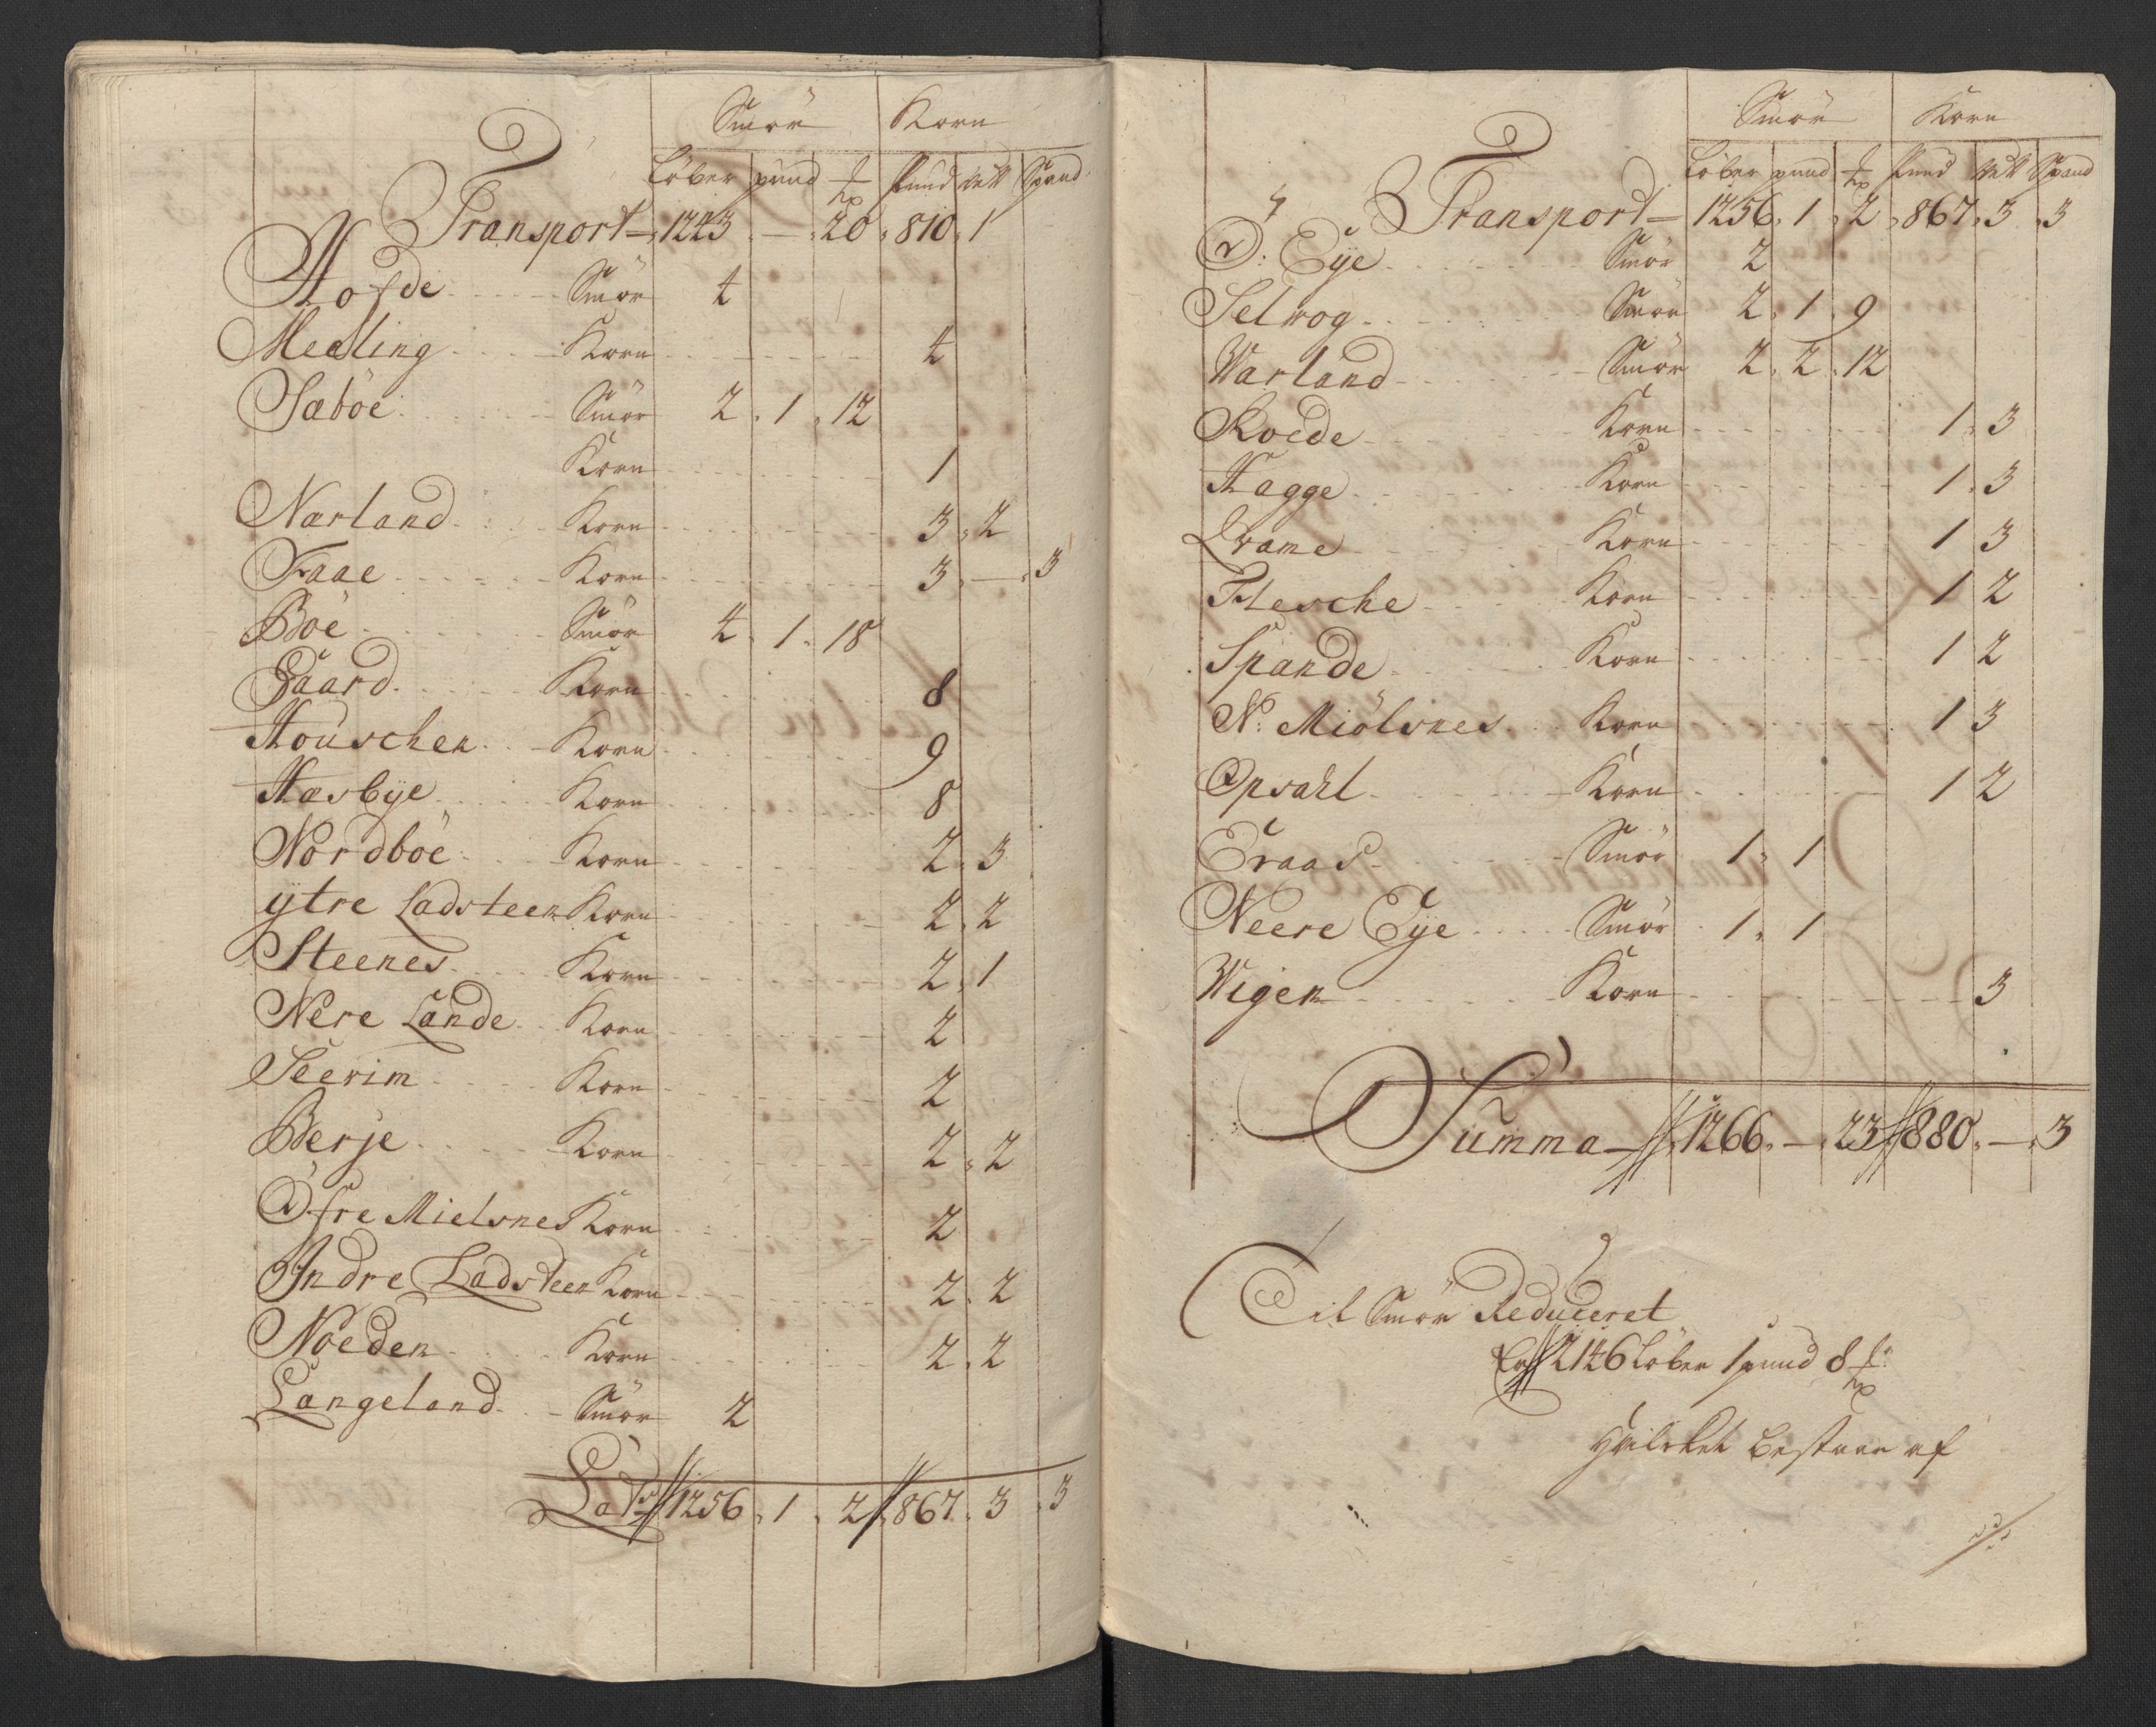 Smör Korn
Löber pund ℔ Pund vett Spand
Transport 1243 — 20 810 1
Hofde Smör 4
Medling Korn 4
Sæböe Smör 2 1 12
Korn 1
Nærland Korn 3 2
Faae Korn 3 — 3
Böe Smör 4 1 18
Gaard Korn 8
Houschen Korn 9
Hæsbÿe Korn 8
Nordböe Korn 2 3
ÿtre Ladsteen Korn 2 2
Steenes Korn 2 1
Nere Lande Korn 2
Seerim Korn 2
Berje Korn 2 2
Öfre Mielsnes Korn 2
Indre Ladsteen Korn 2 2
Nöeden Korn 2 2
Langeland Smör 2
Lats 1256 1 2 867 3 3
Smör Korn
Löber pund ℔ Pund vett Spand
Transport 1256 1 2 867 3 3
Ö: Eÿe Smör 2
Selwog Smör 2 1 9
Warland Smör 2 2 12
Skoede Korn 1 3
Hagge Korn 1 3
Qvame Korn 1 3
Flesche Korn 1 2
Spande Korn 1 2
N: Miölsnes Korn 1 3
Opsahl Korn 1 2
Eraas Smör 1 1
Neere Eÿe Smör 1 1
Wigen Korn 3
Summa 1266 — 23 880 — 3
Til Smör Reduceret
Er 2146 Löber 1 pund 8 ℔
Hvilcket bestaar af